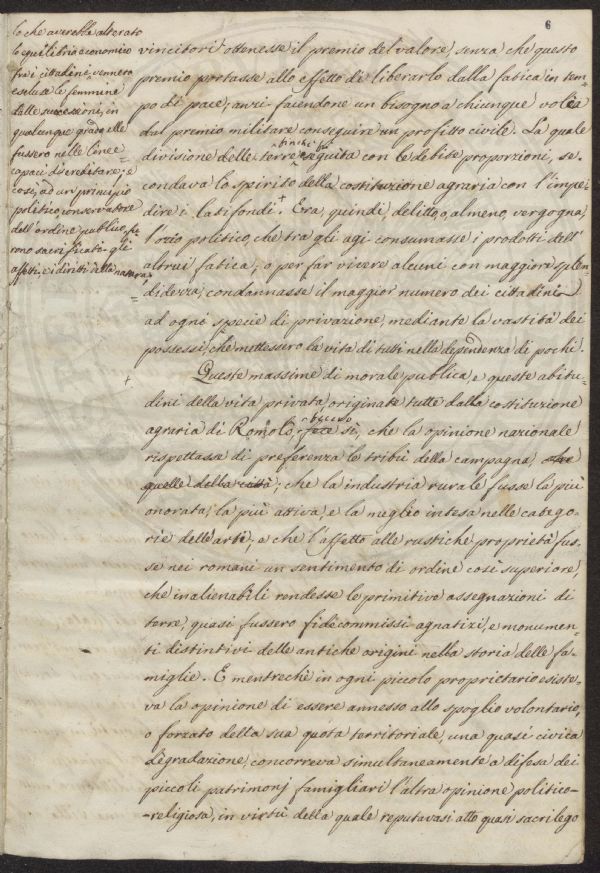 6
lo che averebbe alterato
lo equilibrio economico
fra i cittadini, vennero
escluse le femmine
dalle successioni, in
qualunque grado elle
fussero nelle linee
capaci d'ereditare; e
così, ad un principio
politico, conservatore
dell'ordine pubblico, fu=
rono sacrificati gli
affetti, e i diritti della natura.
vincitori ottenesse il premio del valore, senza che questo
premio portasse allo effetto di liberarlo dalla fatica in tem=
po di pace; anzi facendone un bisogno a chiunque volea
dal premio militare conseguire un profitto civile. La quale
divisione delle terre eseguita con le debite proporzioni, se=
condava lo spirito della costituzione agraria con l'impe=
dire i latifondi. + Era, quindi, delitto, o, almeno, vergogna,
l'ozio politico, che tra gli agi consumasse i prodotti dell'
altrui fatica; o per far vivere alcuni con maggiore splen=
didezza, condannasse il maggior numero dei cittadini
ad ogni specie di privazione, mediante la vastità dei
possessi, che mettessero la vita di tutti nella dependenza di pochi.
+
Queste massime di morale publica, e queste abitu=
dini della vita privata, originate tutte dalla costituzione
agraria di Romolo, fece sì, che la opinione nazionale
rispettasse di preferenza le tribù della campagna, che
quelle della città; che la industria rurale fusse la più
onorata, la più attiva, e la meglio intesa nelle catego=
rie dell'arti; e che l'affetto alle rustiche proprietà fus=
se nei romani un sentimento di ordine così superiore,
che inalienabili rendesse le primitive assegnazioni di
terre, quasi fussero fidecommissi agnatizi, e monumen=
ti distintivi delle antiche origini nella storia delle fa=
miglie. E mentrechè in ogni piccolo proprietario esiste=
va la opinione di essere annesso allo spoglio volontario,
o forzato della sua quota territoriale, una quasi civica
degradazione, concorreva simultaneamente a difesa dei
piccoli patrimonj famigliari l'altra opinione politico=
=religiosa, in virtù della quale reputavasi atto quasi sacrilego